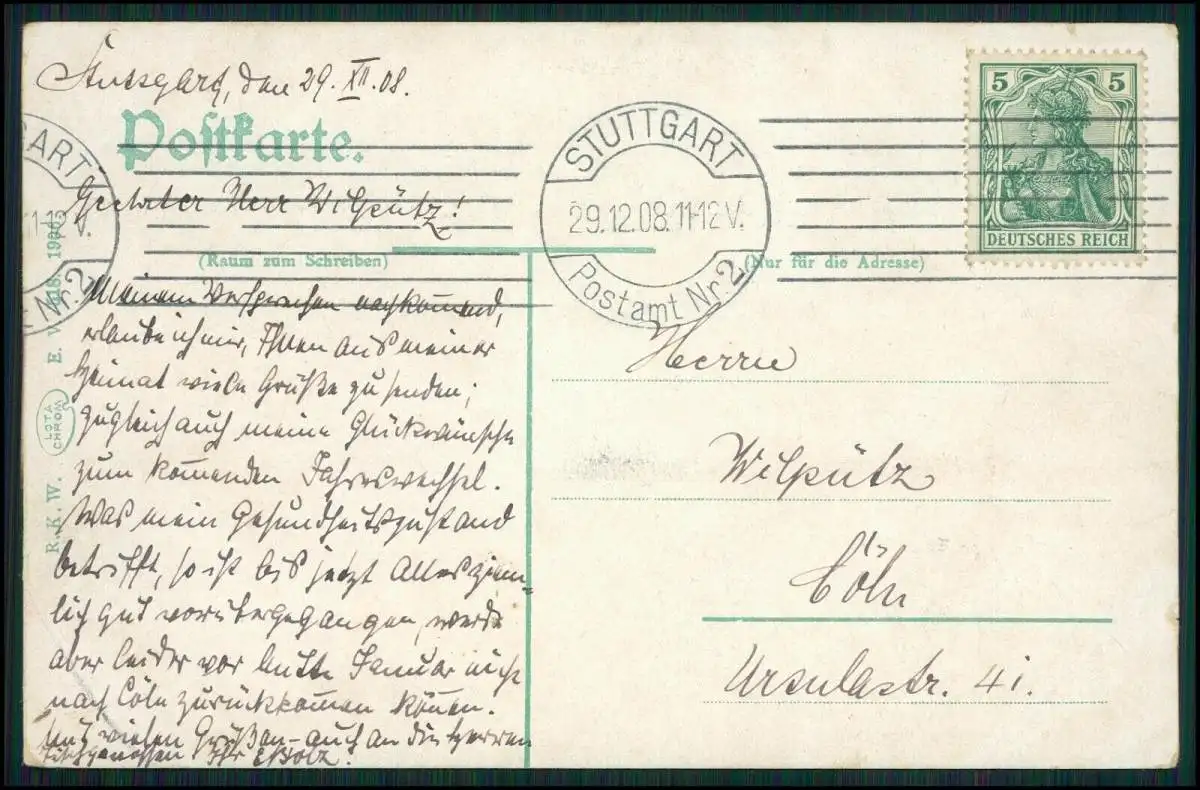 Stuttgart, den 29. XII. 08.
Postkarte.
Geehrter Herr Wilpütz!
(Raum zum Schreiben)
Meinem Versprechen nachkom̄end,
erlaube ich mir, Ihnen aus meiner
Heimat viele Grüße zu senden;
zugleich auch meine Glückwünsche
zum kom̄enden Jahreswechsel.
Was mein Gesundheitszustand
betrifft, so ist bis jetzt Alles ziem-
lich gut vorübergegangen, werde
aber leider vor Januar nicht
nach Cöln zurückkom̄en kön̄en.
Mit vielen Grüßen - auch an die Herren
Tischgenossen Ihr
R. K. W.
LOTA CHROM
E. W.
STUTTGART
29.12.08.11-12V.
Postamt Nr. 2
GART
11-12 V.
Nr. 2
5 5
DEUTSCHES REICH
(Nur für die Adresse)
Herrn
Wilpütz
Cöln
Ursulastr. 41.